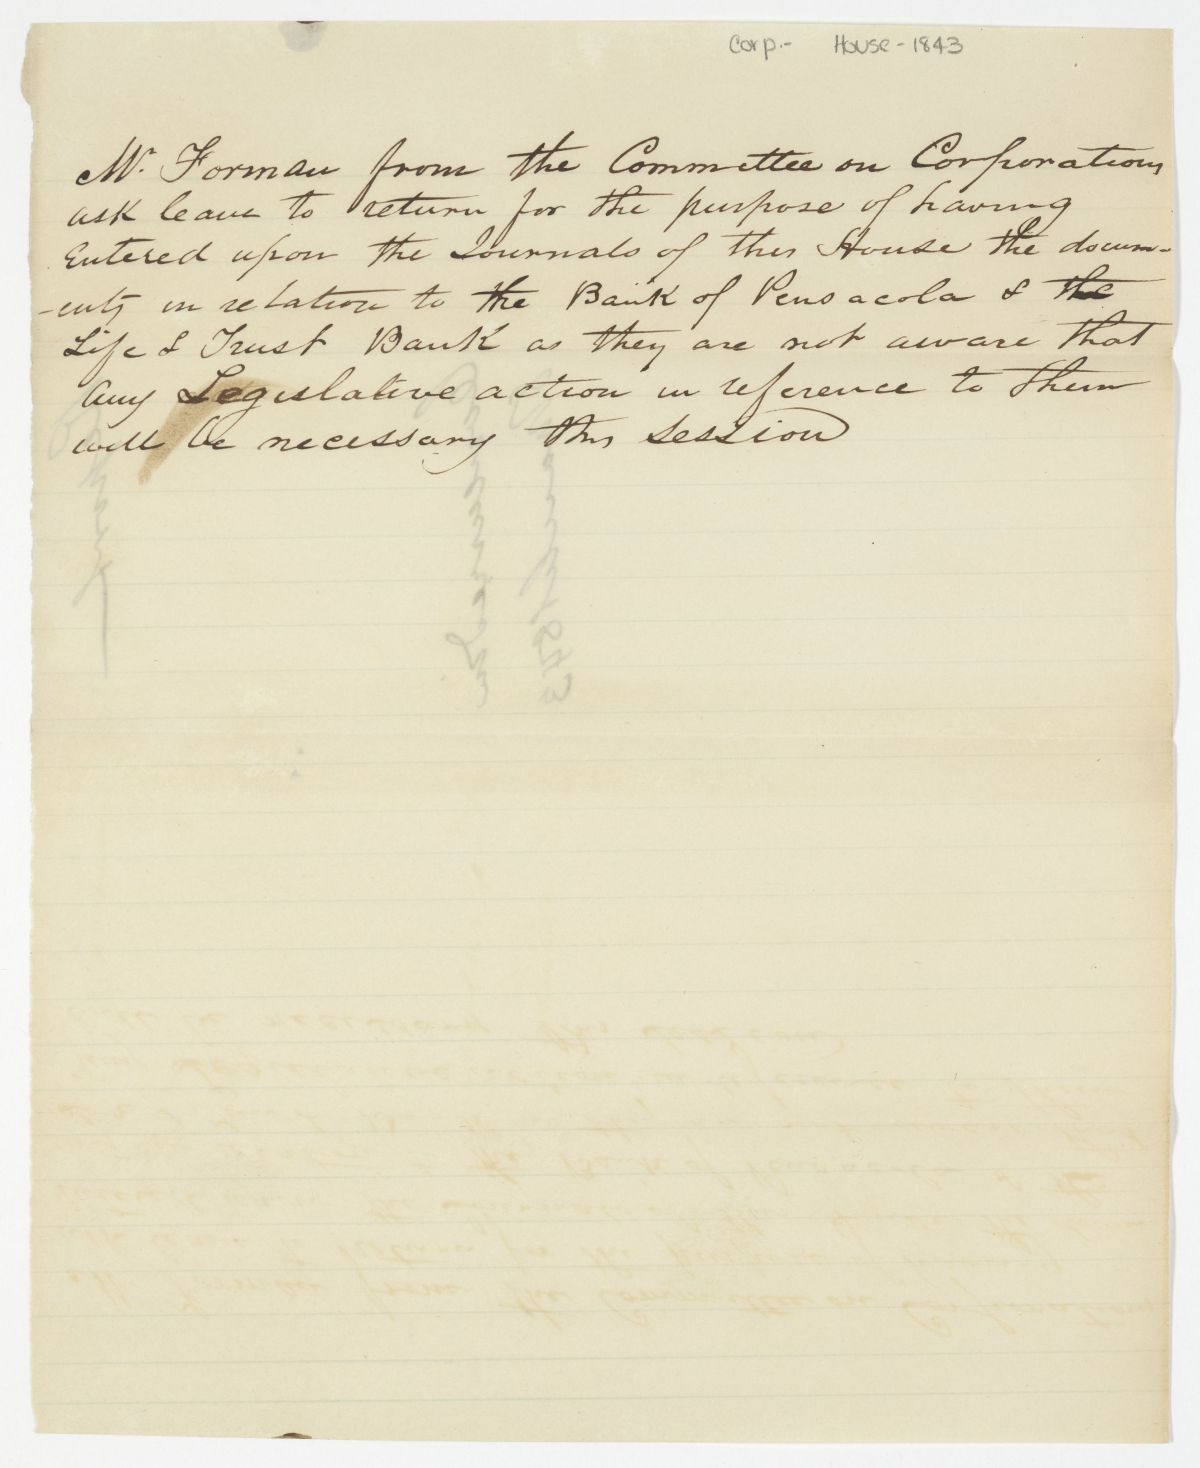 Corp.- House-1843
Mr. Forman from the Committee on Corporations
ask leave to return for the purpose of having
Entered upon the Journals of this House the docum-
-ents in relation to the Bank of Pensacola & the
Life & Trust Bank as they are not aware that
any Legislative action in reference to them
will be necessary this session